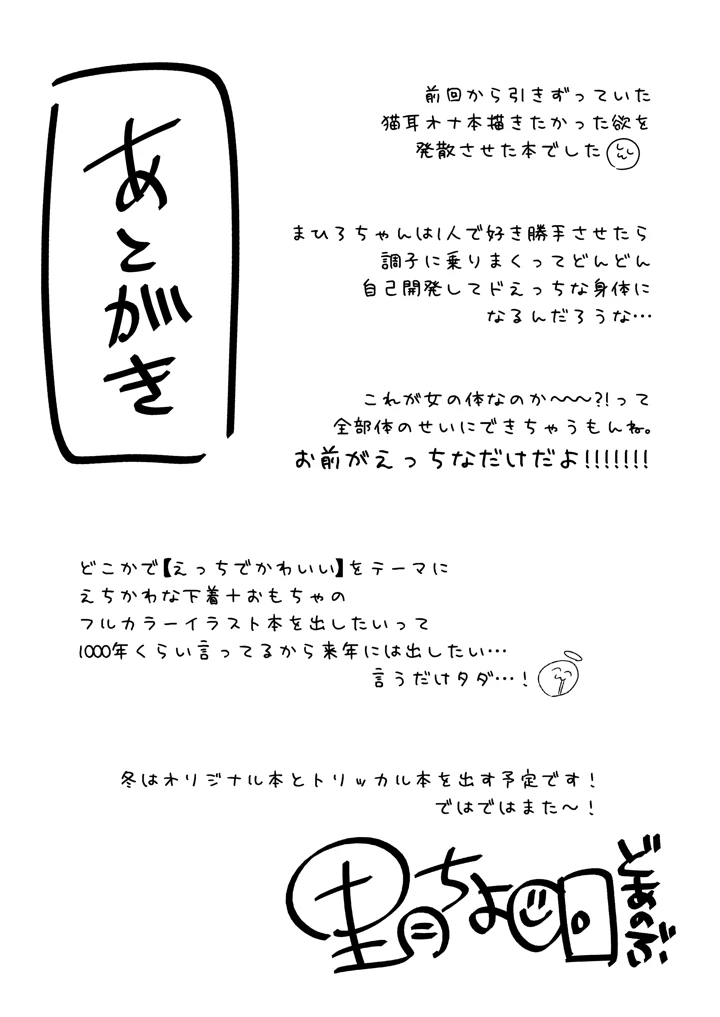 あとがき
前回から引きずっていた
猫耳オナ本描きたかった欲を
発散させた本でした
まひろちゃんは1人で好き勝手させたら
調子に乗りまくってどんどん
自己開発してドえっちな身体に
なるんだろうな…
これが女の体なのか～～～?!って
全部体のせいにできちゃうもんね。
お前がえっちなだけだよ!!!!!!!
どこかで【えっちでかわいい】をテーマに
えちかわな下着＋おもちゃの
フルカラーイラスト本を出したいって
1000年くらい言ってるから来年には出したい…
言うだけタダ…！
冬はオリジナル本とトリッカル本を出す予定です！
ではではまた～！
どあのぶ